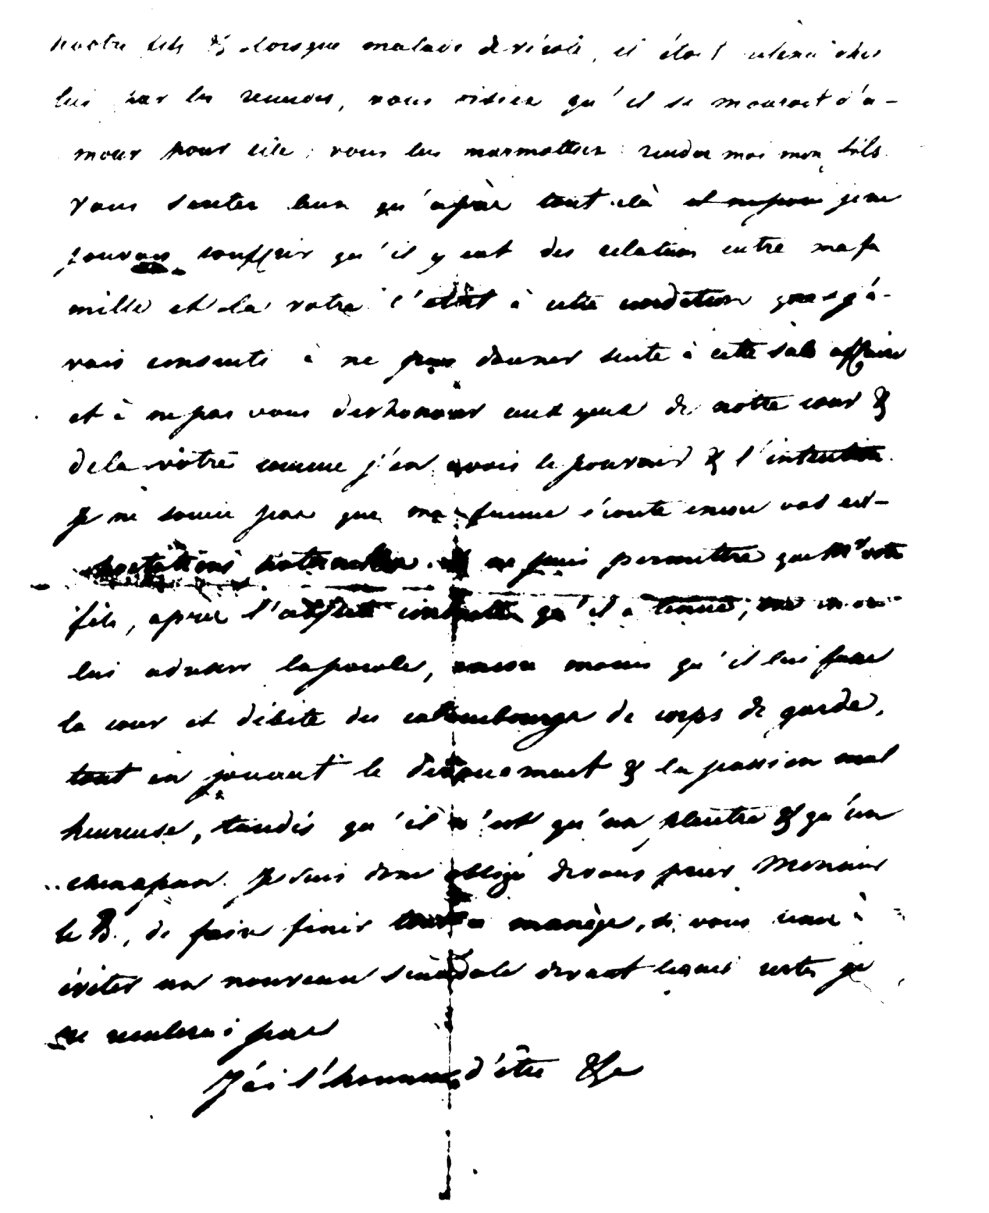 votre fils & lorsque malade de vérole, il étoit retenu chez
lui par les remedes, vous disiez qu'il se mouroit d'a-
mour pour elle; vous lui marmottiez: rendez moi mon fils.
Vous sentez bien qu'après tout celà je ne
pouvais souffrir qu'il y eut des relations entre ma fa
mille et la votre. C'etoit à cette condition que j'a-
vais consenti à ne pas donner suite à cette sale affaire
et à ne pas vous deshonorer aux yeux de notre cour &
de la vôtre comme j'en avois le pouvoir & l'intention.
Je ne soucie pas que ma femme écoute encore vos ex-
hortations paternelles. ne puis permettre que Mr votre
fils, après l' conduite qu'il a tenue,
lui adresser la parole, encore moins qu'il lui fasse
la cour et débite des calembourgs de corps de garde,
tout en jouant le devouement & la passion mal
heureuse, tandis qu'il n'est qu'un pleutre & qu'un
chenapan. Je suis donc obligé de vous prier Monsieur
le B., de faire finir tout ce manège, si vous tenez à
éviter un nouveau scandale devant lequel certes je
ne reculerai pas
J'ai l'honneur d'être &c